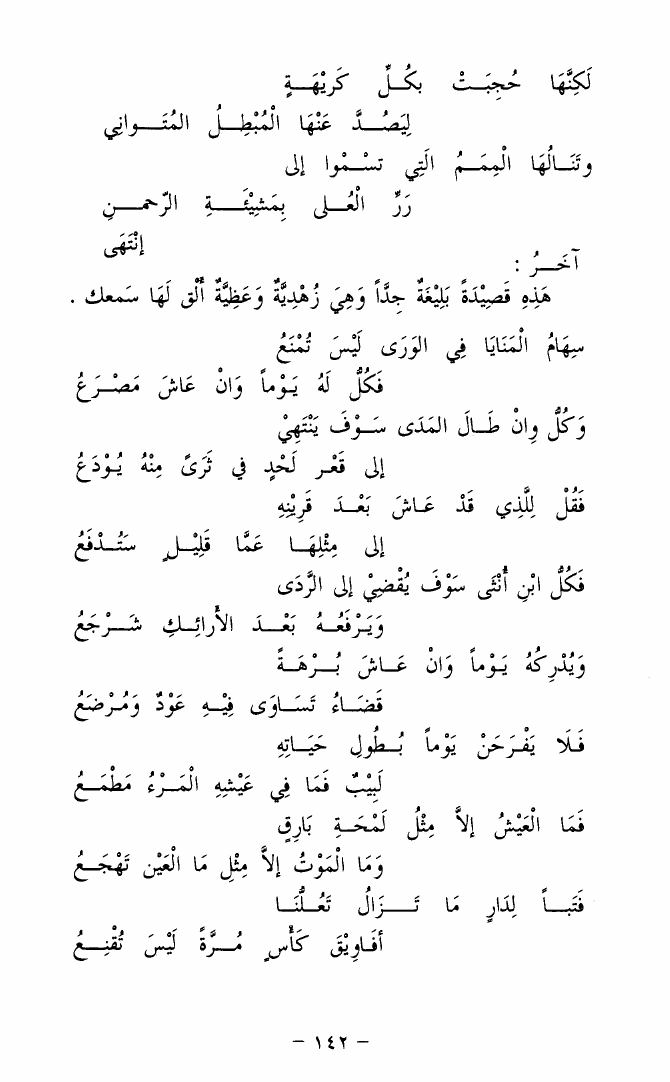 لَكِنَّهَا حُجِبَتْ بِكُلِّ كَرِيْهَةٍ
لِيَصُدَّ عَنْهَا الْمُبْطِلُ المُتَوانِي
وتَنَالُهَا الْهِمَمُ الَتِي تسْمُوا إلى
رَرِّ الْعُلى بِمَشِيْئَةِ الرَّحمنِ
إنْتَهَى
آخرُ :
هَذِهِ قَصِيْدَةٌ بَلِيْغَةٌ جِدَّاً وَهِيَ زُهْدِيَّةٌ وَعَظِيَّةٌ أَلْقِ لَهَا سَمعك .
سِهَامُ الْمَنَايَا فِي الوَرَى لَيْسَ تُمْنَعُ
فَكُلٌّ لَهُ يَوْماً وَانْ عَاشَ مَصْرَعُ
وَكُلٌّ وِانْ طَالَ المَدَى سَوْفَ يَنْتَهِيْ
إلى قَعْرِ لَحْدٍ في ثَرَىً مِنْهُ يُوْدَعُ
فَقُلْ لِلَّذِي قَدْ عَاشَ بَعْدَ قَرِيْنِهِ
إلى مِثْلِهَا عَمَّا قَلِيْلٍ سَتُدْفَعُ
فَكُلُّ ابْنِ أُنْثَى سَوْفَ يُفْضِيْ إلى الرَّدَى
وَيَرْفَعُهُ بَعْدَ الأرائِكِ شَرْجَعُ
وَيُدْرِكُهُ يَوْماً وَانْ عَاشَ بُرْهَةً
قَضَاءٌ تَسَاوَى فِيْهِ عَوْدٌ وَمُرْضَعُ
فَلَا يَفْرَحَنْ يَوْماً بُطُولِ حَيَاتِهِ
لَبِيْبٌ فَمَا فِي عَيْشِهِ الْمَرْءُ مَطْمَعُ
فَمَا الْعَيْشُ إلاَّ مِثْلُ لَمْحَةِ بَارِقٍ
وَمَا الْمَوْتُ إلاَّ مِثْلِ مَا الْعَيْنِ تَهْجَعُ
فَتَبـاً لِدَارٍ مَا تَزالُ تَعُلُّنَا
أفَاوِيْقَ كَأْسٍ مُرَّةً لَيْسَ تُقْنِعُ
- ١٤٢ -